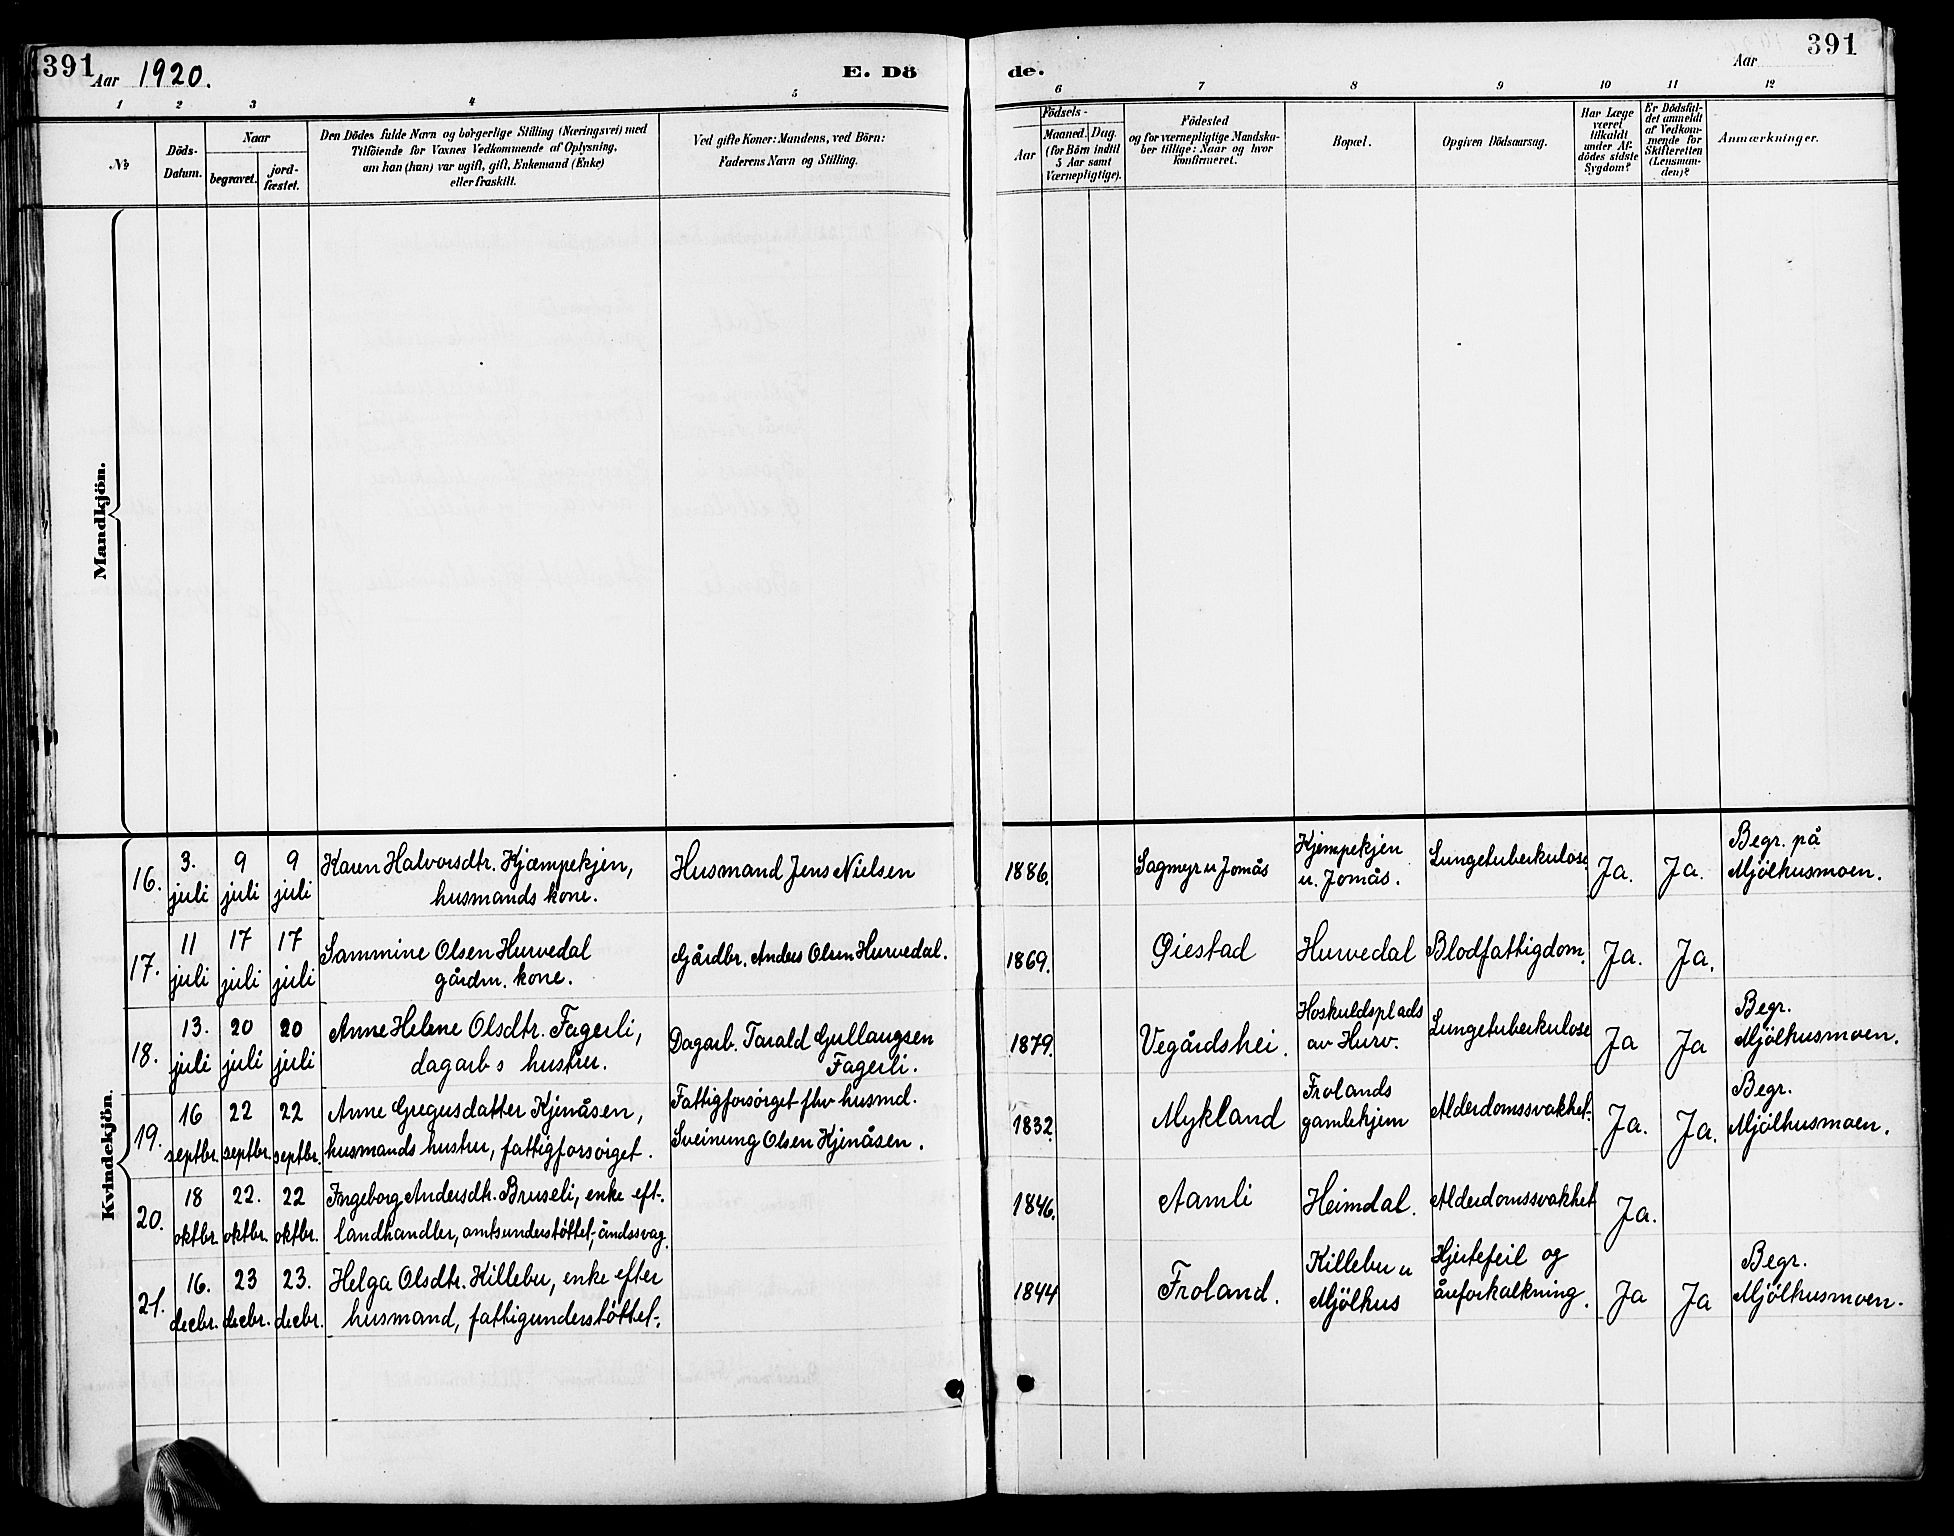 391
Aar 1920.
E. Dö
de.
Aar
391
1 2 3 4 5 6 7 8 9 10 11 12
No
Döds-
Datum.
Naar
begravet.
jord-
fæstet.
Den Dödes fulde Navn og borgerlige Stilling (Næringsvei) med
Tilföiende for Voxnes Vedkommende af Oplysning,
om han (hun) var ugift, gift, Enkemand (Enke)
eller fraskilt.
Ved gifte Koner: Mandens, ved Börn:
Faderens Navn og Stilling.
Födsels-
Aar
Maaned. Dag.
(for Börn indtil
5 Aar samt
Værnepligtige).
Födested
og for værnepligtige Mandska-
ber tillige: Naar og hvor
konfirmeret.
Bopæl.
Opgiven Dödsaarsag.
Har Læge
været
tilkaldt
under Af-
dödes sidste
Sygdom?
Er Dödsfal-
det anmeldt
af Vedkom-
mende for
Skifteretten
(Lensman-
den)?
Anmærkninger.
Mandkjön.
Kvindekjön.
16.
3.
juli
9
juli
9
juli
Karen Halvorsdtr. Kjæmpekjen,
husmands kone.
Husmand Jens Nielsen
1886.
Sagmyr u Jomås
Kjempekjen
u. Jomås.
Lungetuberkulose.
Ja.
Ja.
Begr. på
Mjölhusmoen.
17.
11
juli
17
juli
17
juli
Sammine Olsen Hurvedal
gårdm. kone.
Gårdbr. Anders Olsen Hurvedal.
1869.
Øiestad
Hurvedal
Blodfattigdom.
Ja.
Ja.
18.
13.
juli
20
juli
20
juli
Anne Helene Olsdtr. Fagerli,
dagarb s hustru.
Dagarb. Tarald Gullaugsen
Fagerli.
1879.
Vegårdshei.
Hoskuldsplads
av Hurv.
Lungetuberkulose
Ja
Ja
Begr.
Mjölhusmoen.
19.
16
septbr.
22
septbr.
22
septbr.
Anne Gregusdatter Kjenåsen,
husmands hustru, fattigforsörget.
Fattigforsörget fhv husmd.
Sveinung Olsen Kjenåsen.
1832.
Mykland
Frolands
gamlehjem
Alderdomssvakhet.
Ja.
Ja.
Begr.
Mjölhusmoen.
20.
18
oktbr.
22.
oktbr.
22
oktbr.
Ingeborg Andersdtr. Bruseli, enke eft.
landhandler, amtsunderstöttet, åndssvag.
1846.
Aamli
Heimdal.
Alderdomssvakhet
Ja.
21.
16.
decbr.
23
decbr.
23.
decbr.
Helga Olsdtr. Killebu, enke efter
husmand, fattigunderstöttet.
1844
Froland.
Killebu u
Mjölhus
Hjertefeil og
åreforkalkning.
Ja
Ja
Begr.
Mjölhusmoen.